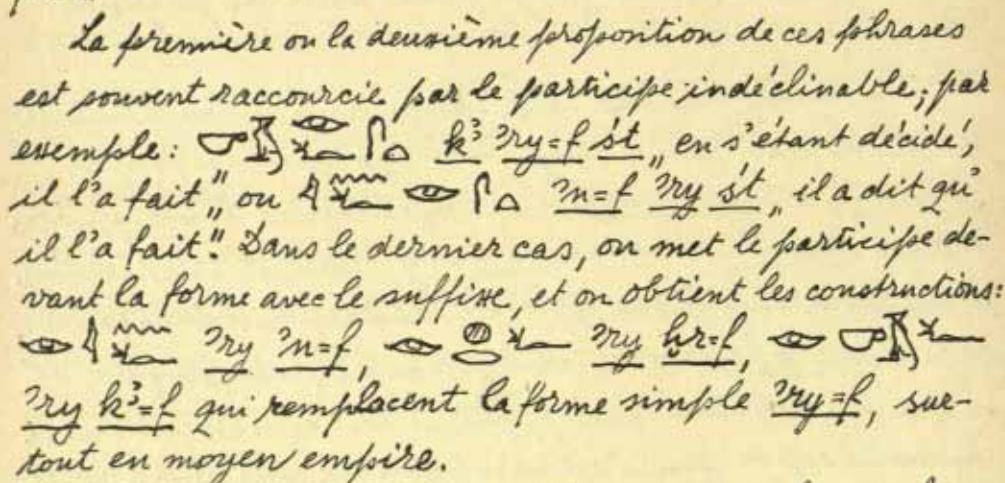 La première ou la deuxième proposition de ces phrases
est souvent raccourcie par le participe indéclinable; par
exemple: 𓎡𓄿𓁹𓆑𓋴𓏏 kꜣ ʾry=f śt „en s'étant décidé,
il l'a fait" ou 𓇋𓈖𓆑𓁹𓋴𓏏 ʾn=f ʾry śt „il a dit qu'
il l'a fait". Dans le dernier cas, on met le participe de-
vant la forme avec le suffixe, et on obtient les constructions:
𓁹𓇋𓈖𓆑 ʾry ʾn=f, 𓁹𓐍𓂋𓆑 ʾry ḫr=f, 𓁹𓎡𓄿𓆑
ʾry kꜣ=f qui remplacent la forme simple ʾry=f, sur-
tout en moyen empire.